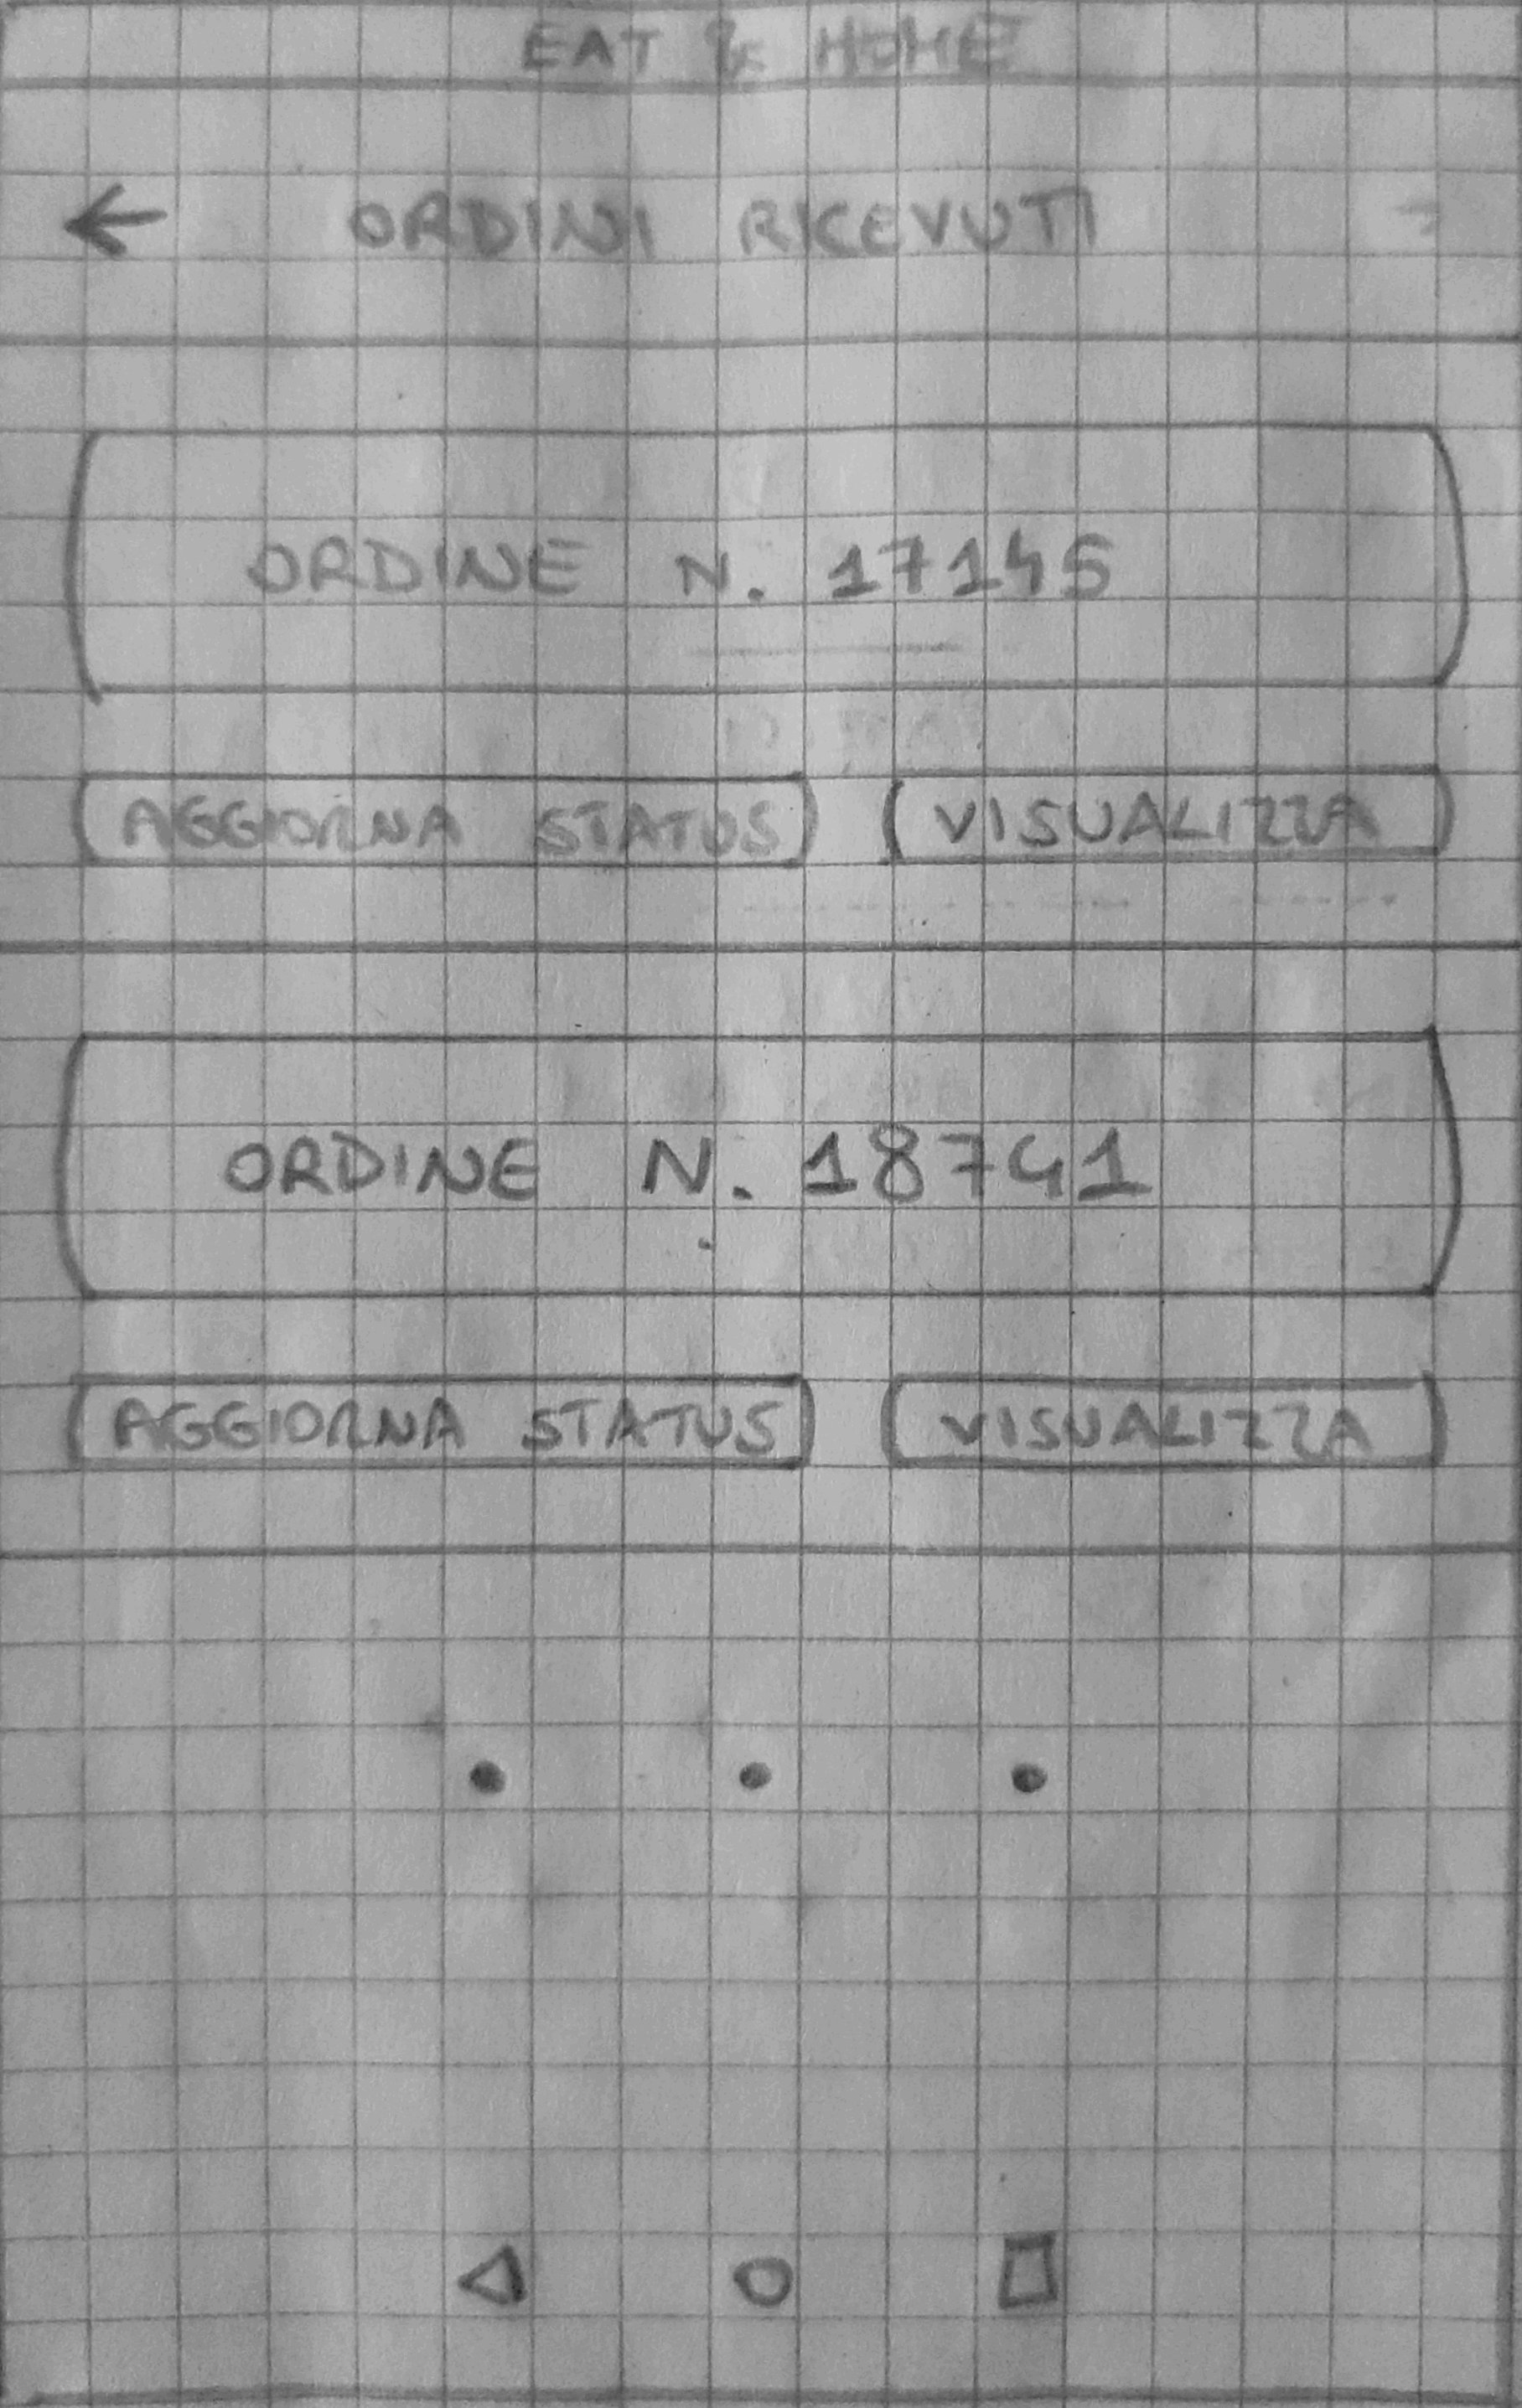 EAT & HOME
ORDINI RICEVUTI
ORDINE N. 17145
AGGIORNA STATUS VISUALIZZA
ORDINE N. 18741
AGGIORNA STATUS VISUALIZZA